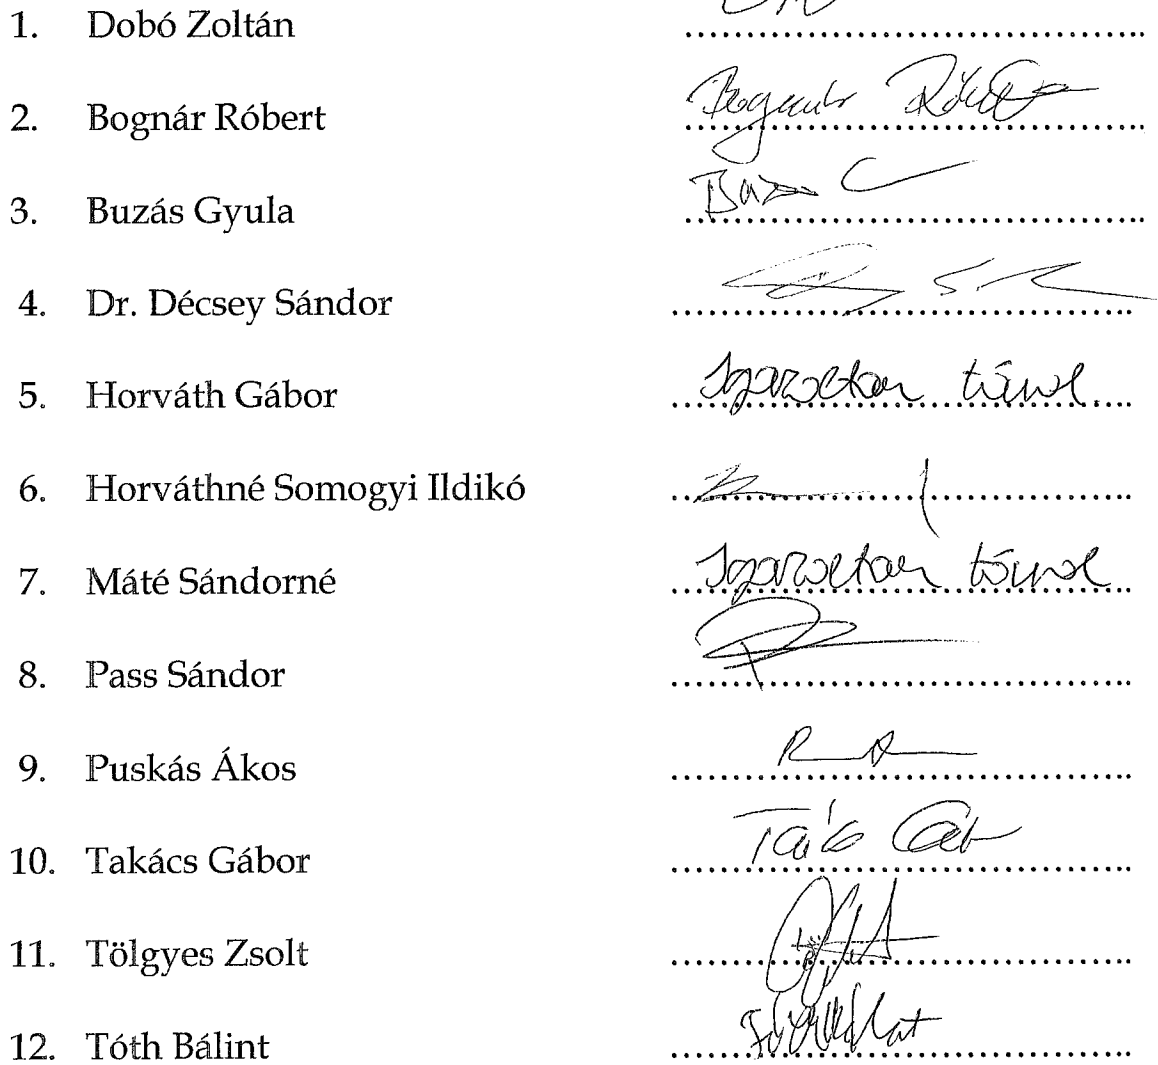 1. Dobó Zoltán
2. Bognár Róbert Bognár Róbert
3. Buzás Gyula
4. Dr. Décsey Sándor
5. Horváth Gábor Igazoltan távol
6. Horváthné Somogyi Ildikó
7. Máté Sándorné Igazoltan távol
8. Pass Sándor
9. Puskás Ákos
10. Takács Gábor
11. Tölgyes Zsolt
12. Tóth Bálint